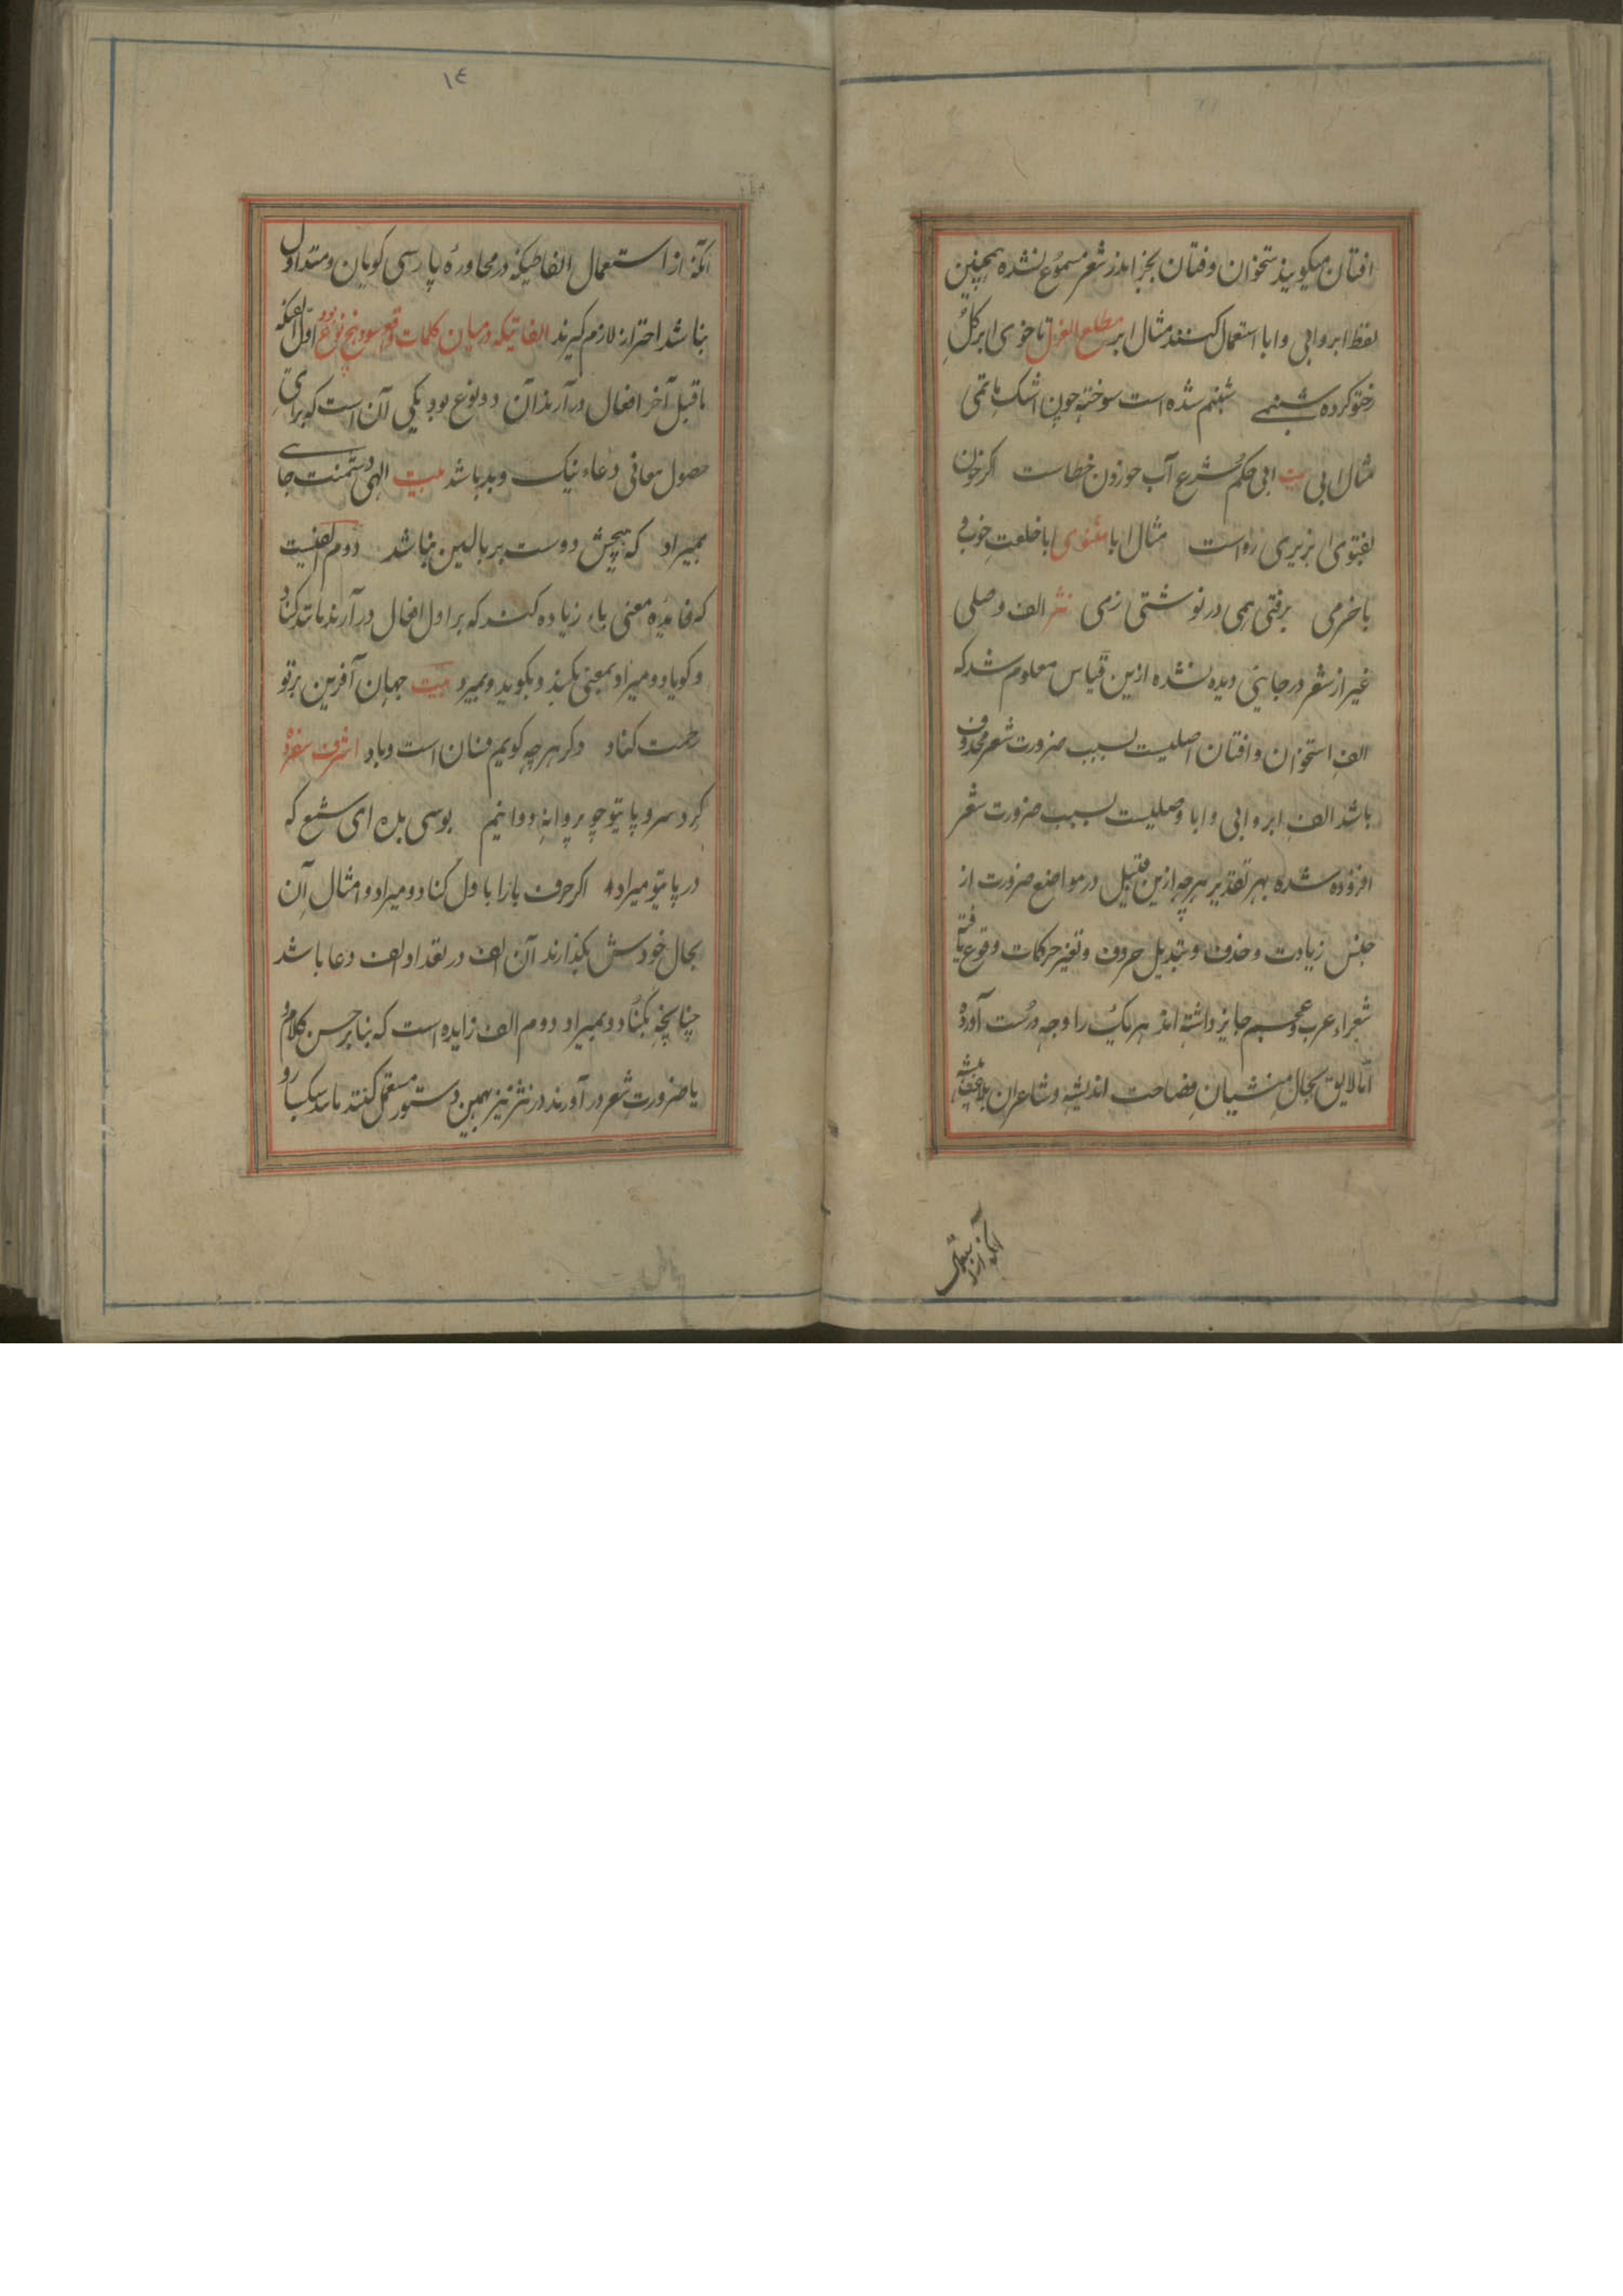 افتان میکویند ستخوان و فتان بجز اندر شعر مسموع نشده همچنین
لفظ ابر و ابی و ابا استعمال کنند مثال ابر مطلع الغزل تا خوی ابر کل
رختو کرده شبنمی شبنم شده است سوخته چون اشک ماتمی
مثال ابی بیت ابی حکم شرع آب خوردن خطاست اکر خون
بفتوی بریزی رواست مثال ابا مثنوی ابا خلعت خوب
با خرمی برفتی همی در نوشتی زمی نثر الف وصلی
غیر از شعر در جایی دیده نشده ازین قیاس معلوم شد که
الف استخوان و افتان اصلیست بسبب ضرورت شعر محذوف
باشد الف ابر و ابی و ابا وصلیست بسبب ضرورت شعر
افزوده شده بهر تقدیر هرچه ازین قبیل در مواضع ضرورت از
جنس زیادت و حذف و تبدیل حروف و تغیر حرکات وقوع یافته
شعراء عرب و عجم جایز داشته اند هر یک را وجه درست آورده
امّا لایق بحال منشیان فصاحت اندیشه و شاعران بلاغت پیشه
آنکه از استعمال
١٤
آنکه از استعمال الفاظیکه در محاوره پارسی کویان و متداول
نباشد احتراز لازم کیرند الفاتیکه درمیان کلمات واقع شود پنج نوع بود اوّل الفیکه
ماقبل آخر افعال در آرند آن دو نوع بود یکی آن است که برای
حصول معانی دعاء نیک و بد باشد بیت الهی دشمنت جاے
بمیراد که هیچش دوست بر بالین نباشد دوم الفیست
که فایده معنی باء زیاده کنند که بر اول افعال در آرند مانند کناد
و کویاد و میراد بمعنی بکند و بکوید و بمیرد بیت جهان آفرین بر تو
رحمت کناد دکر هرچه کویم فسان است و باد اشرف سفرده
کرد سر و پا یتو چو پروانه دوانیم بوسی بده ای شمع که
در پا یتو میراد اکر حرف با را با ول کناد و میراد و امثال آن
بحال خودش بکذارند آن الف در تعداد الف دعا باشد
چنانچه بکناد و بمیراد دوم الف زایده است که بنا بر حسن کلام
یا ضرورت شعر در آورند در نثر نیز بهمین دستور مستعمل کنند مانند سبکسارو